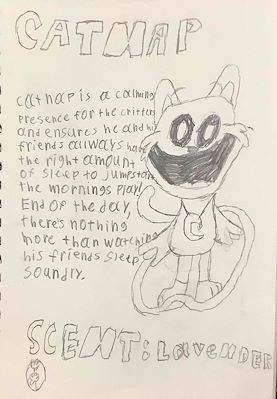 CATNAP
catnap is a calming
presence for the critters
and ensures he and his
friends allways have
the right amount
of sleep to jumpstart
the mornings play!
End of the day,
there's nothing
more than watching
his friends sleep
soundly.
SCENT: LAVENDER